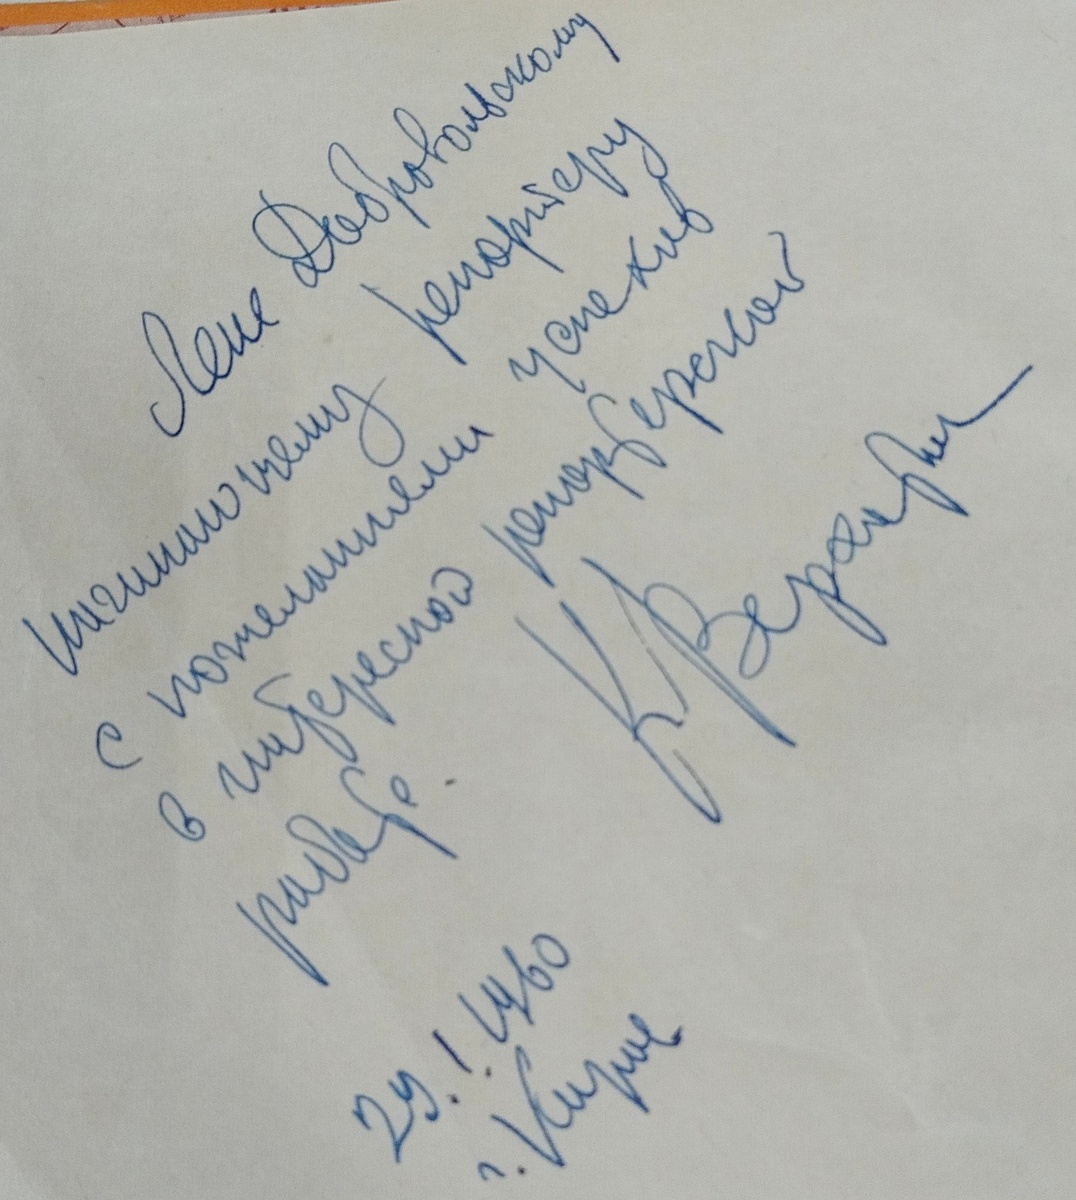 Лене Добровольскому
начинающему репортеру
с пожеланием успехов
в интересной репортерской
работе.
К Верак
г. Киров